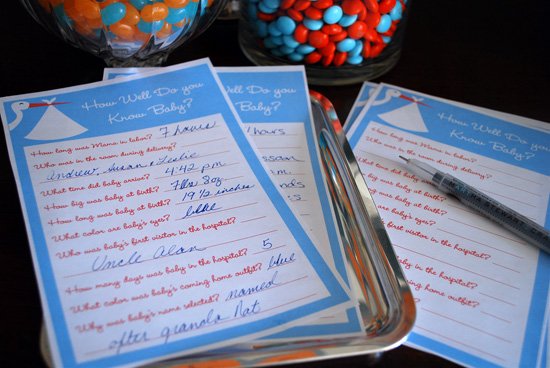 How Well Do you
Know Baby?
How long was Mama in labor? 7 hours
Who was in the room during delivery?
Andrew, Susan & Leslie
What time did baby arrive? 4:42 pm
How big was baby at birth? 7lbs 8oz
How long was baby at birth? 19 1/2 inches
What color are baby's eyes? blue
Who was baby's first visitor in the hospital?
Uncle Alan
How many days was baby in the hospital? 5
What color was baby's coming home outfit? blue
Why was baby's name selected? named
after grandpa Nat
How Well Do you
Know Baby?
hours
How Well Do you
Know Baby?
How long was Mama in labor?
Who was in the room during delivery?
What time did baby arrive?
How big was baby at birth?
How long was baby at birth?
What color are baby's eyes?
Who was baby's first visitor in the hospital?
How many days was baby in the hospital?
What color was baby's coming home outfit?
Why was baby's name selected?